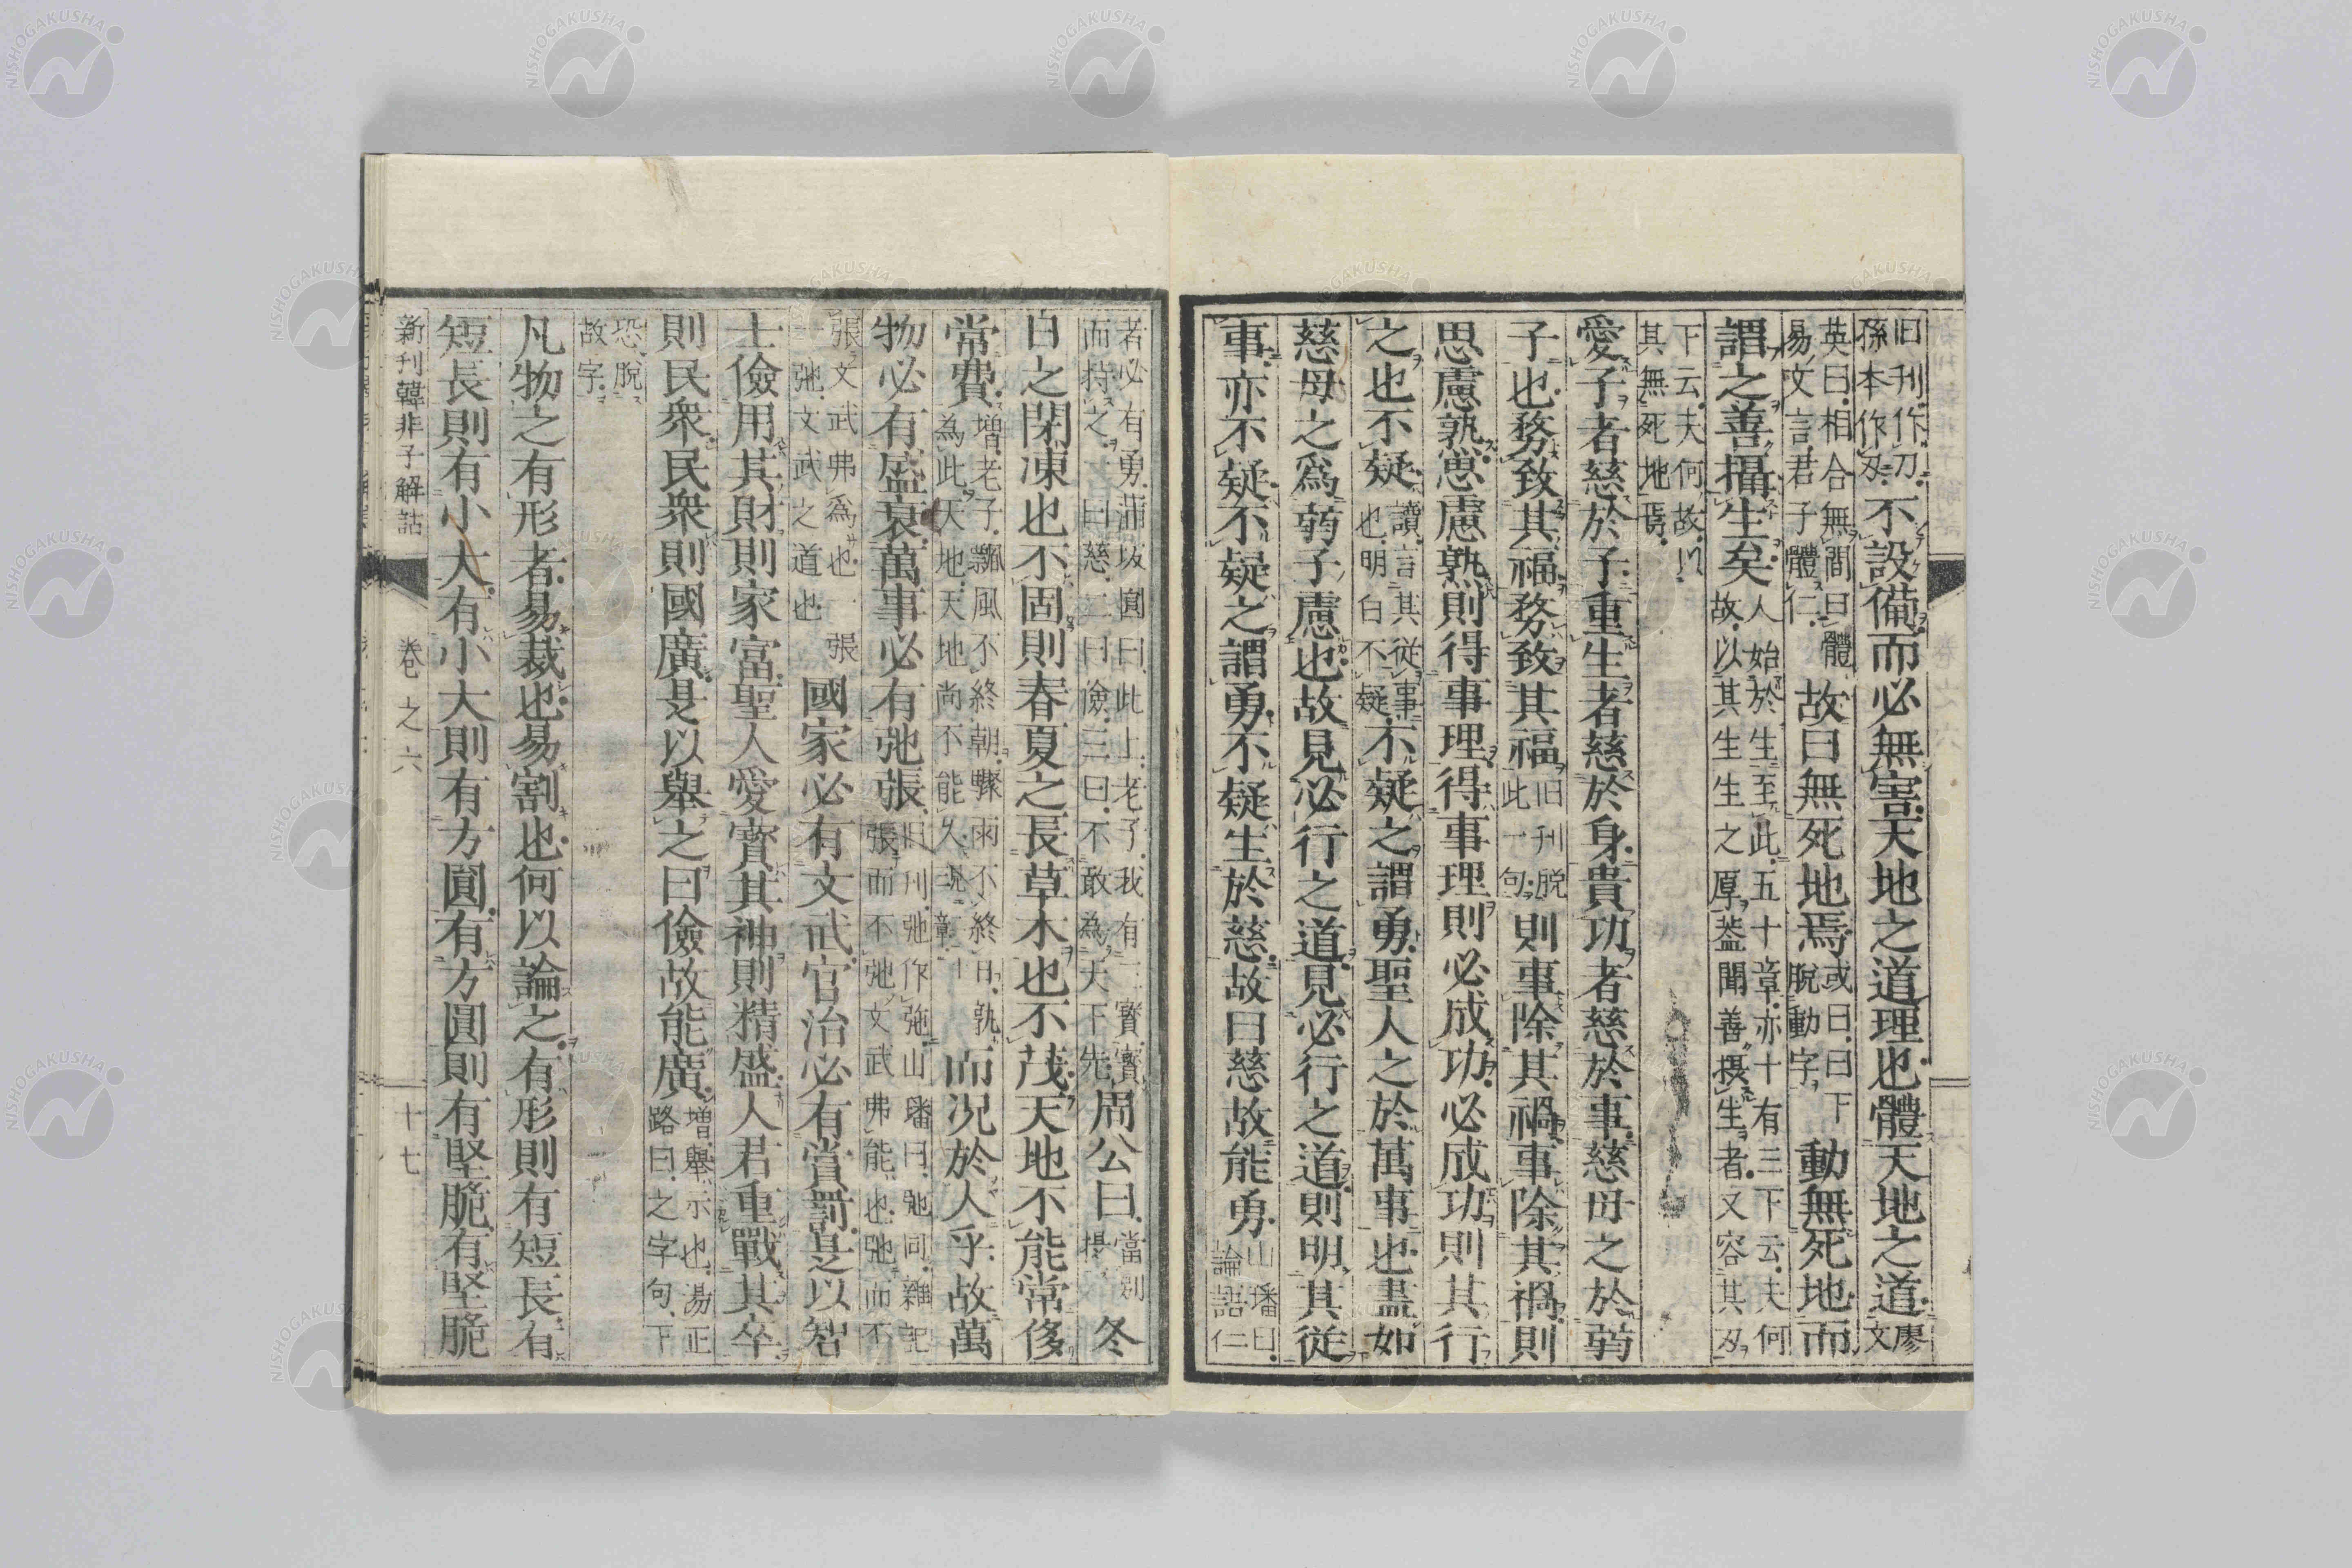 旧刊作刀孫本作刃不設備而必無害天地之道理也體天地之道廖文
英曰相合無間曰體易文言君子體仁故曰無死地焉或曰曰下脫動字動無死地而
謂之善攝生矣人始於生至此五十章亦十有三下云夫何故以其生生之厚蓋聞善摂生者又容其刃
下云夫何故以其無死地焉
愛子者慈於子重生者慈於身貴功者慈於事慈母之於弱
子也務致其福務致其福旧刊脫此一句則事除其禍事除其禍則
思慮熟思慮熟則得事理得事理則必成功必成功則其行
之也不疑讀言其從事也明白不疑不疑之謂勇聖人之於萬事也盡如
慈母之爲弱子慮也故見必行之道見必行之道則明其従
事亦不疑不疑之謂勇不疑生於慈故曰慈故能勇山璠曰論語仁
者必有勇蒲坂圓曰此上老子我有三寳寳而持之一曰慈二曰儉三曰不敢為天下先周公曰當別提冬
日之閉凍也不固則春夏之長草木也不茂天地不能常侈
常費増老子飄風不終朝驟雨不終日孰為此天地天地尚不能久而況於人乎故萬
物必有盛衰萬事必有弛張旧刊弛作弛山璠曰弛同雜記張而不弛文武弗能也弛而不
張文武弗爲也一張一弛文武之道也國家必有文武官治必有賞罰是以智
士儉用其財則家富聖人愛寳其神則精盛人君重戰其卒
則民衆民衆則國廣是以舉之曰儉故能廣増舉示也湯正路曰之字句下
恐脫故字
凡物之有形者易裁也易割也何以論之有形則有短長有
短長則有小大有小大則有方圓有方圓則有堅脆有堅脆
新刊韓非子解詁 卷之六 十七